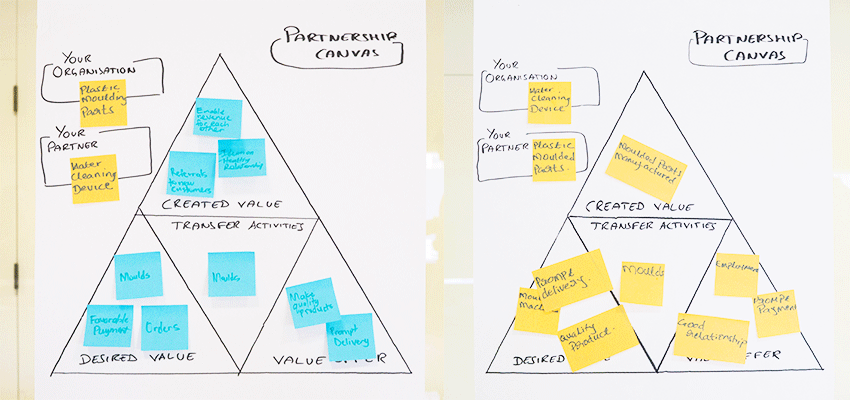 PARTNERSHIP
CANVAS
YOUR
ORGANISATION
Plastic
Moulding
Parts
YOUR
PARTNER
Water
Cleaning
Device
Enable
revenue
for each
other
Referrals
to new
customers
Relationship
CREATED VALUE
TRANSFER ACTIVITIES
Moulds
Favorable
Payment
Orders
DESIRED VALUE
Moulds
Make
quality
products
Prompt
Delivery
VALUE OFFER
PARTNERSHIP
CANVAS
YOUR
ORGANISATION
Water
Cleaning
Device
YOUR
PARTNER
Plastic
Moulded
Parts.
Moulded Parts
Manufactured
CREATED VALUE
TRANSFER ACTIVITIES
Prompt
delivery.
Quality
Product.
DESIRED VALUE
Moulds
Employment
Prompt
Payment
Good
Relationship